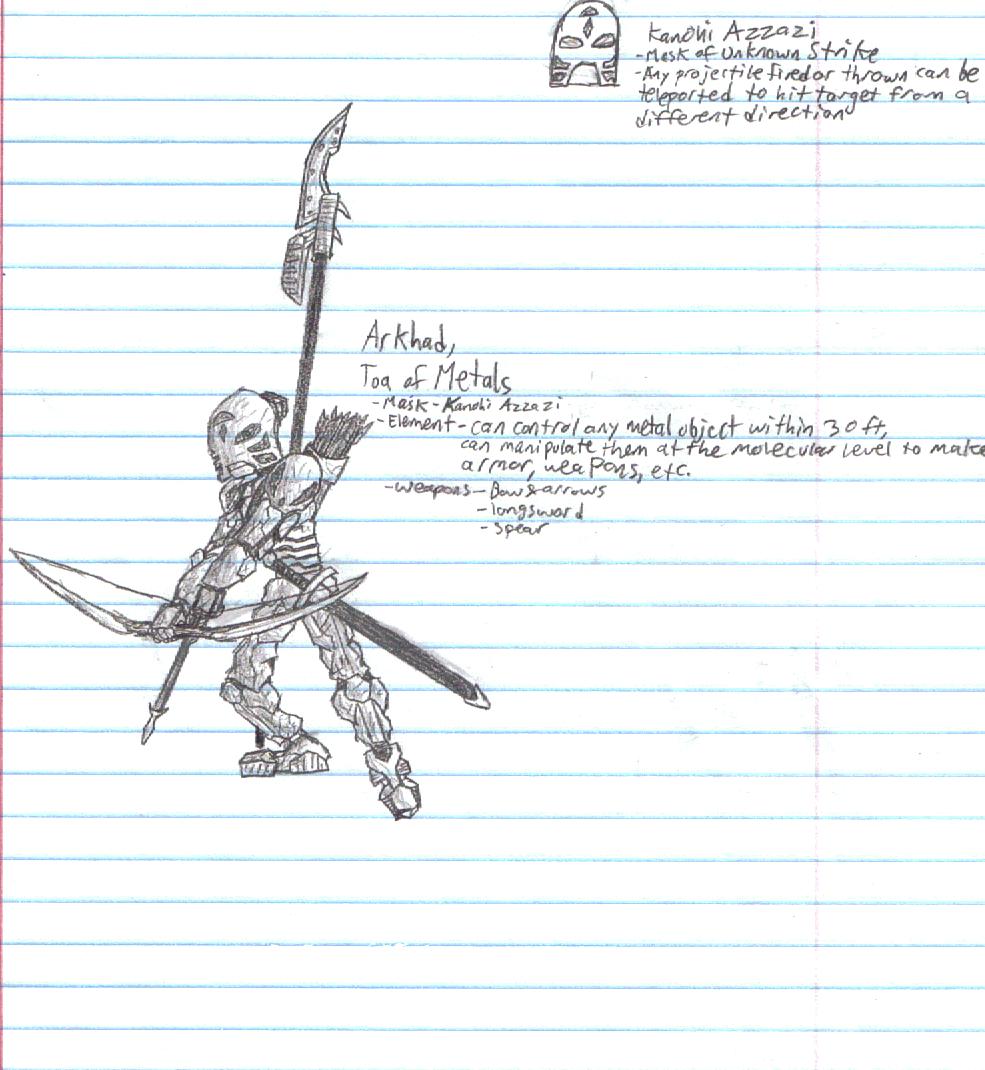 Kanohi Azzazi
-Mask of Unknown Strike
-Any projectile fired or thrown can be
teleported to hit target from a
different direction
Arkhad,
Toa of Metals
-Mask-Kanohi Azzazi
-Element-can control any metal object within 30ft,
can manipulate them at the molecular level to make
armor, weapons, etc.
-weapons-Bow & arrows
-longsword
-spear